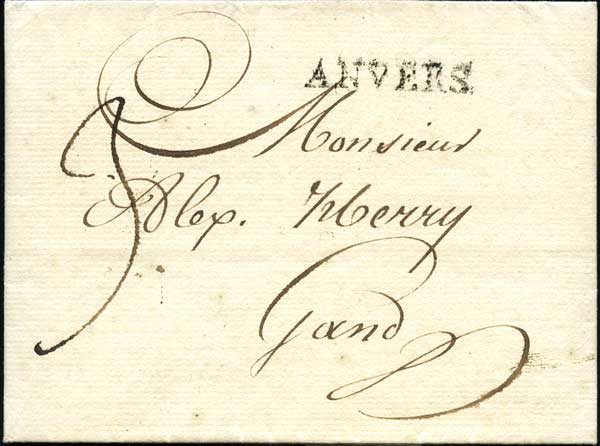 ANVERS
Monsieur
3
Alex. Hherry
Gand